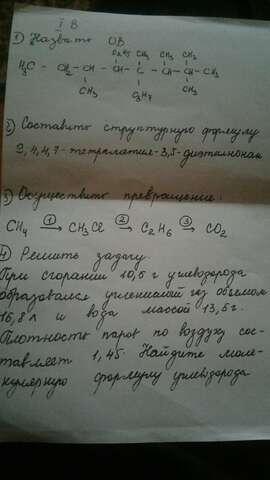 I В
① Назвать ОВ
C₂H₅ CH₃ CH₃ CH₃
H₃C - CH₂ - CH - CH - C - CH - CH - CH₃
CH₃ C₃H₇ CH₃
② Составить структурную формулу
2,4,4,7-тетраметил-3,5-диэтилнонан
③ Осуществить превращение:
CH₄ ①→ CH₃Cl ②→ C₂H₆ ③→ CO₂
④ Решить задачу.
При сгорании 10,5 г углеводорода
образовался углекислый газ объемом
16,8 л и вода массой 13,5 г.
Плотность паров по воздуху сос-
тавляет 1,45. Найдите моле-
кулярную формулу углеводорода